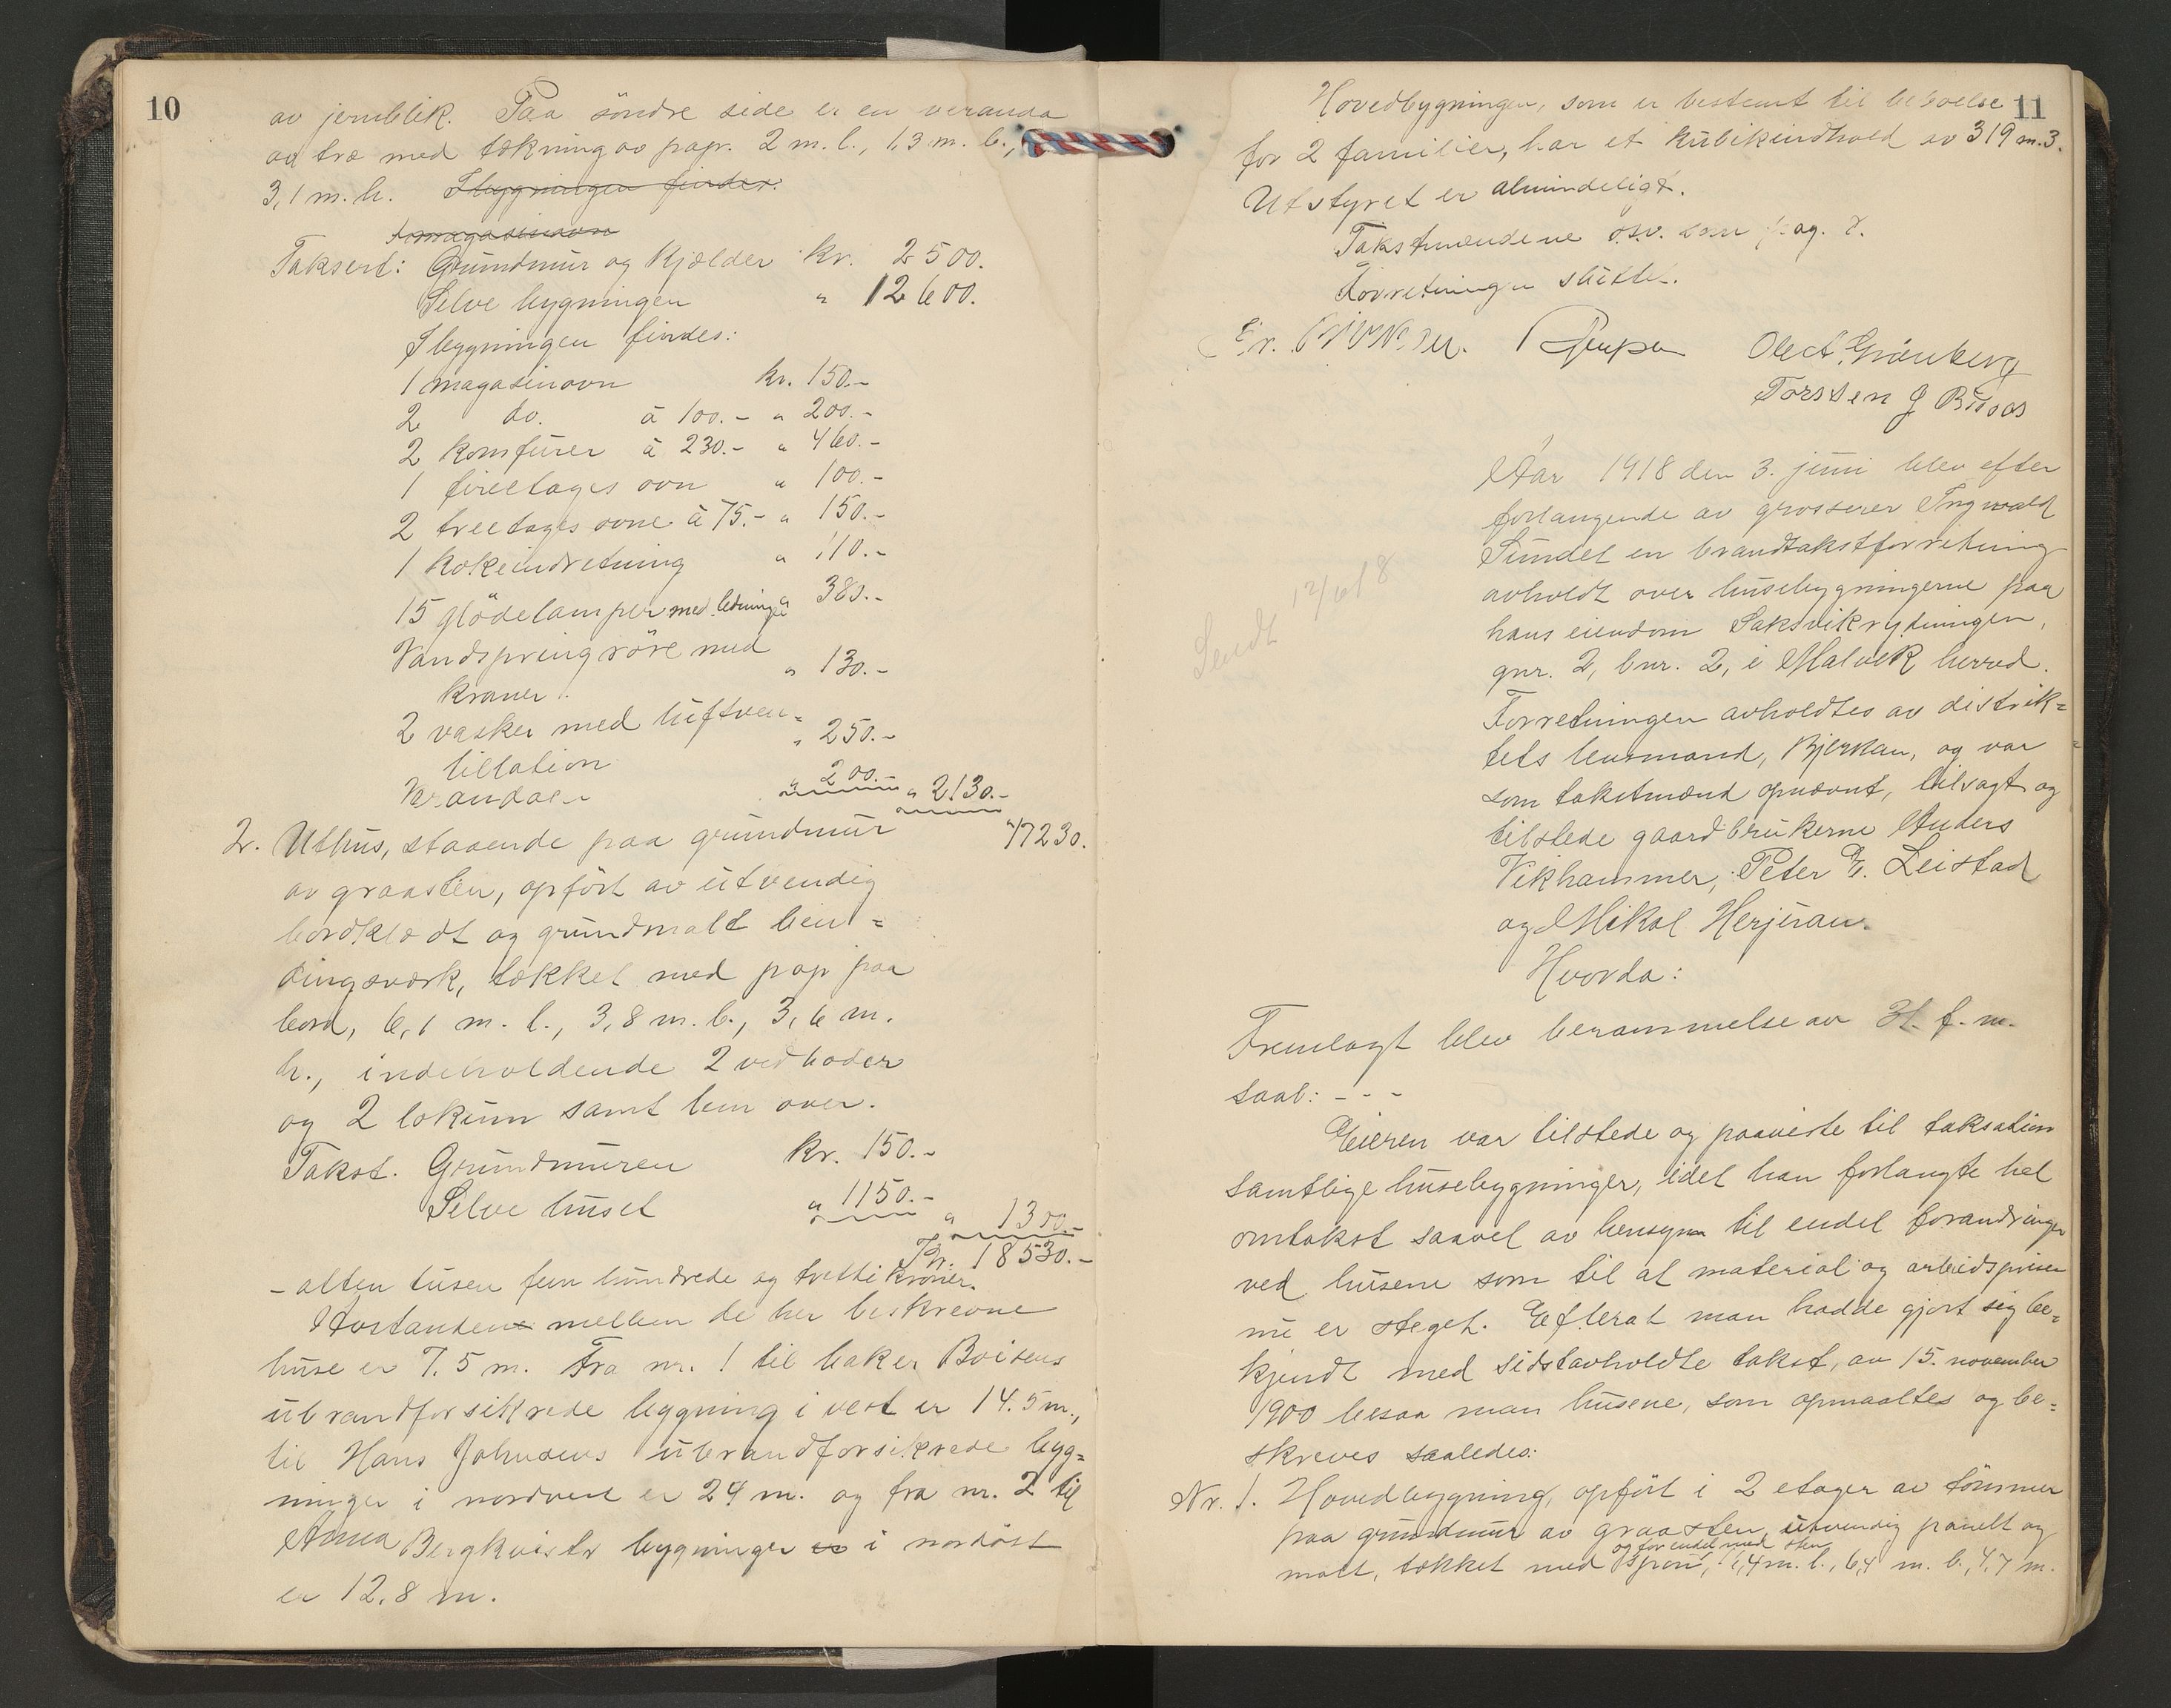 10
av jernblik. Paa söndre side er en veranda
av træ med tækning av papr. 2 m. l., 1,3 m. b.,
3,1 m. h. I bygningen findes:
1 magasinovn
Taksert: Grundmur og Kjælder kr. 2500.
Selve bygningen " 12600.
I bygningen findes:
1 magasinovn kr. 150.-
2 do. à 100.- " 200.-
2 komfurer à 230.- " 460.-
1 fireetages ovn " 100.-
2 treetages ovne à 75.- " 150.-
1 kokeindretning " 110.-
15 glödelamper med ledninger " 380.-
Vandspringröre med
kraner " 130.-
2 vasker med luftven=
tillation " 250.-
Verandaen " 200.- " 2130.-
" 17230.
2. Uthus, staaende paa grundmur
av graasten, opfört av utvendig
bordklædt og grundmalt bin=
dingsverk, tækket med pap paa
bord, 6,1 m. l., 3,8 m. b., 3,6 m.
h., indeholdende 2 vedboder
og 2 lokum samt lem over.
Takst. Grundmuren kr. 150.-
Selve huset " 1150.- " 1300.-
Kr. 18530.-
- atten tusen fem hundrede og tretti kroner.
Avstanden mellem de her beskrevne
huse er 7.5 m. Fra nr. 1 til baker Boisens
ubrandforsikrede bygning i vest er 14.5 m.,
til Hans Johnsens ubrandforsikrede byg=
ninger i nordvest er 24 m. og fra nr. 2 til
Anna Bergkvists bygninger er i nordöst
er 12.8 m.
11
Hovedbygningen, som er bestemt til beboelse
for 2 familier, har et kubikindhold av 319 m.3.
Utstyret er almindeligt.
Takstmændene o.s.v. som pag. 7.
Forretningen sluttet.
Ole A. Grönberg
Torsten J
Aar 1918 den 3. juni blev efter
forlangende av grosserer Ingvald
Sundet en brandtakstforretning
avholdt over husebygningerne paa
hans eiendom Saksvikrydningen,
gnr. 2, bnr. 2, i Malvik herred.
Forretningen avholdtes av distrik=
tets lensmand, Bjerkan, og var
som takstmænd opnævnt, tilsagt og
tilstede gaardbrukerne Anders
Vikhammer, Peter E. Leistad
og Mikal Herjuan.
Hvorda:
Sendt 12/6 18
Fremlagt blev berammelse av 31. f. m.
saal: - - -
Eieren var tilstede og paaviste til taksation
samtlige husebygninger, idet han forlangte hel
omtakst saavel av hensyn til endel forandringer
ved husene som til at material og arbeidspriser
nu er steget. Efterat man hadde gjort sig be=
kjendt med sidstavholdte takst, av 15. november
1900 besaa man husene, som opmaaltes og be=
skreves saaledes:
Nr. 1. Hovedbygning, opfört i 2 etager av tömmer
paa grundmur av graasten, utvendig panelt og
og for endel med sten
malt, tækket med spon, 1,4 m. l., 6,4 m. b., 4,7 m.